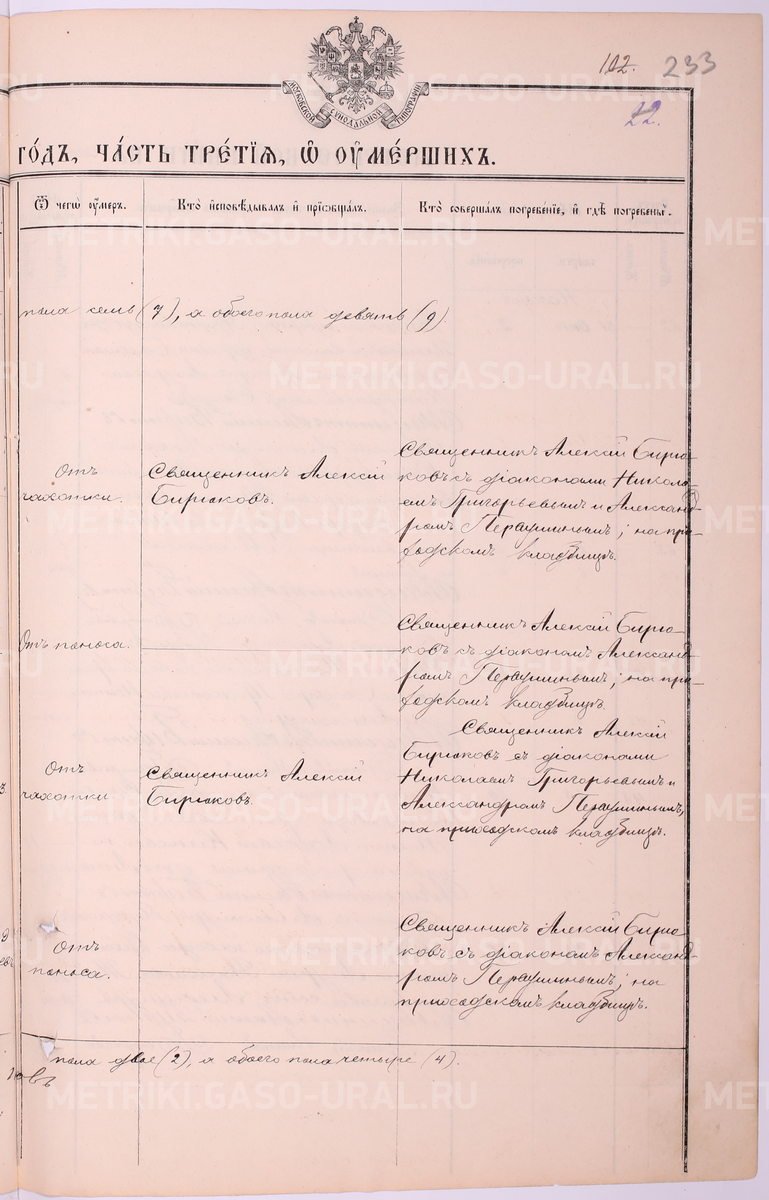 102. 233
22.
МОСКОВСКОЙ СѴНОДАЛЬНОЙ ТИПОГРАФІИ
ГО́ДЪ, ЧА́СТЬ ТРЕ́ТІѦ, Ѡ҆ ОУ҆МЕ́РШИХЪ.
Ѿ чегѡ̀ оу҆́меръ. Кто̀ и҆сповѣ́дывалъ и҆ прїѡбща́лъ. Кто̀ соверша́лъ погребе́нїе, и҆ гдѣ̀ погребены̀.
пола семь (7), а обоего пола девять (9).
Отъ
чахотки.
Священникъ Алексій
Бирюковъ.
Священникъ Алексій Бирю-
ковъ съ діаконами Никола-
емъ Григорьевымъ и Александ-
ромъ Первушинымъ; на при-
ходскомъ кладбищѣ.
Отъ поноса.
Священникъ Алексій Бирю-
ковъ съ діакономъ Александ-
ромъ Первушинымъ; на при-
ходскомъ кладбищѣ.
Отъ
чахотки
Священникъ Алексій
Бирюковъ.
Священникъ Алексій
Бирюковъ съ діаконами
Николаемъ Григорьевымъ и
Александромъ Первушинымъ,
на приходскомъ кладбищѣ.
Отъ
поноса.
Священникъ Алексій Бирю-
ковъ съ діакономъ Александ-
ромъ Первушинымъ; на
приходскомъ кладбищѣ.
пола двое (2), а обоего пола четыре (4).
METRIKI.GASO-URAL.RU